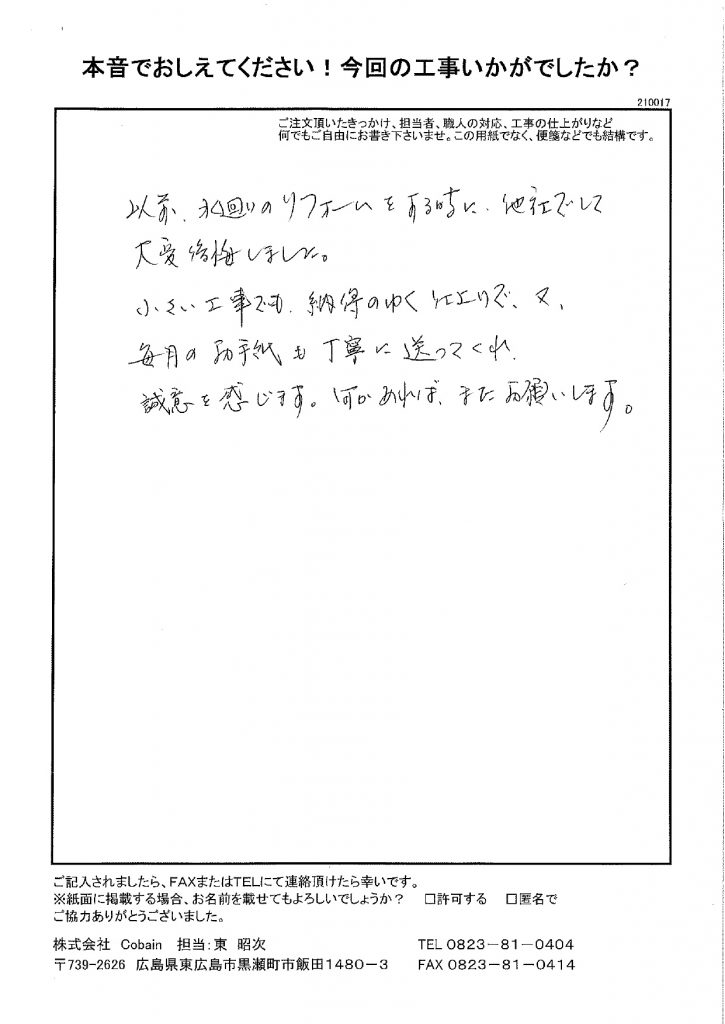 本音でおしえてください！今回の工事いかがでしたか？
210017
ご注文頂いたきっかけ、担当者、職人の対応、工事の仕上がりなど
何でもご自由にお書き下さいませ。この用紙でなく、便箋などでも結構です。
以前、水回りのリフォームをする時に、他社でして
大変後悔しました。
小さい工事でも、納得のゆく仕上りで、又、
毎月のお手紙も丁寧に送ってくれ、
誠意を感じます。何かあれば、またお願いします。
ご記入されましたら、FAXまたはTELにて連絡頂けたら幸いです。
※紙面に掲載する場合、お名前を載せてもよろしいでしょうか？　□許可する　□匿名で
ご協力ありがとうございました。
株式会社　Cobain　担当：東　昭次　TEL 0823－81－0404
〒739-2626　広島県東広島市黒瀬町市飯田1480－3　FAX 0823－81－0414